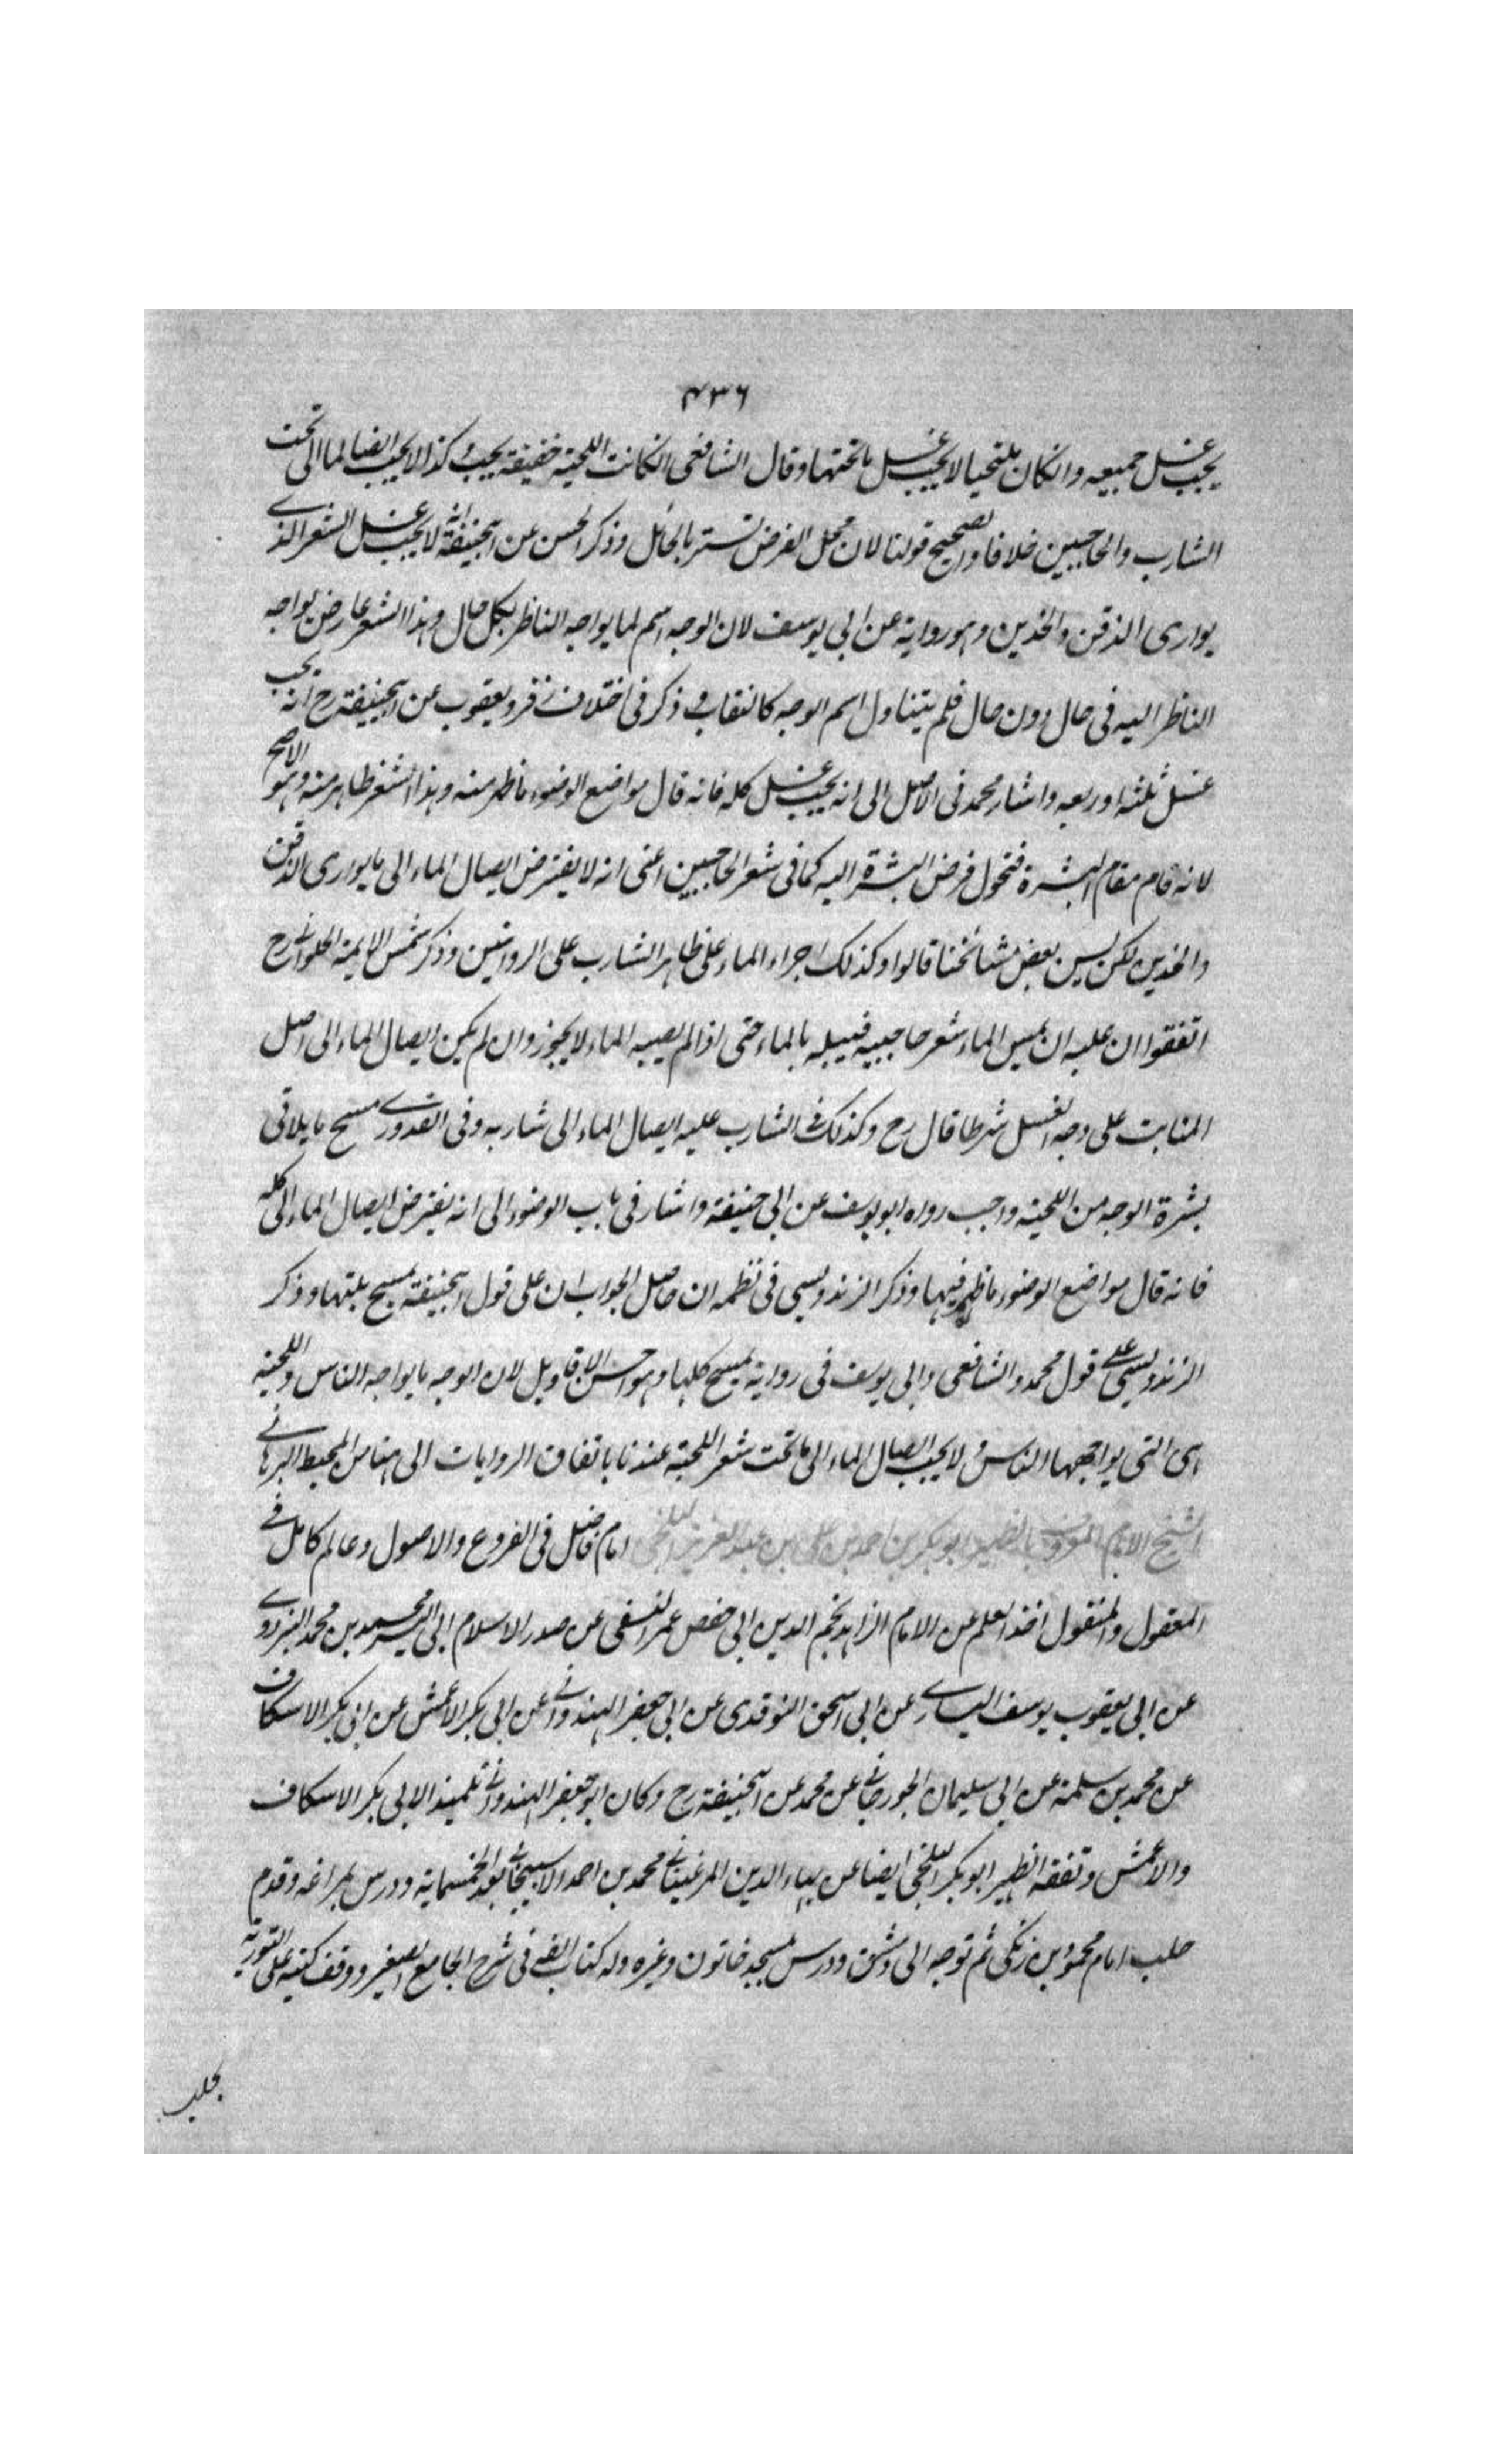 ٤٣٦
يجب غسل جميعه وانكان ملتحيا لا يجب غسل ماتحتها وقال الشافعى انكانت اللحية خفيفة يجب وكذا لا يجب ايصا الماء الى تحت
الشارب والحاجبين خلافا والصحيح قولنا لان محل الفرض تستر بالحائل وذكر الحسن عن ابيحنيفة انه لا يجب غسل الشعر الذى
يوارى الذقن والخدين وهو رواية عن ابى يوسف لان الوجه اسم لما يواجه الناظر بكل حال وهذا الشعر عارض يواجه
الناظر اليه فى حال دون حال فلم يتناول اسم الوجه كالنقاب وذكر فى اختلاف زفر ويعقوب عن ابيحنيفة رح انه يجب
غسل ثلثه او ربعه واشار محمد فى الاصل الى انه يجب غسل كله فانه قال مواضع الوضوء ماظهر منه وهذا الشعر ظاهر منه وهو الاصح
لانه قام مقام البشرة فتحول فرض البشرة اليه كما فى شعر الحاجبين اعنى انه لا يفترض ايصال الماء الى مايوارى الذقن
والخدين لكن ليس بعض مشائخنا قالوا وكذلك اجراء الماء على ظاهر الشارب على الروايتين وذكر شمس الايمة الحلوانى رح
اتفقوا ان عليه ان يمس الماء شعر حاجبيه فيبله بالماء حتى اذا لم يصبه الماء لا يجوز وان لم يكن ايصال الماء الى اصل
المنابت على وجه الغسل شرطا قال رح وكذلك فى الشارب عليه ايصال الماء الى شاربه وفى القدورى مسح مايلاقى
بشرة الوجه من اللحية واجب رواه ابو يوسف عن ابى حنيفة واشار فى باب الوضوء الى انه يفترض ايصال الماء الى كله
فانه قال مواضع الوضوء ماظهر فيها وذكر الزندويسى فى نظمه ان حاصل الجواب ان على قول ابيحنيفة يمسح ثلثها وذكر
الزندويسى على قول محمد والشافعى وابى يوسف فى رواية يمسح كلها وهو احسن الاقاويل لان الوجه مايواجه الناس واللحية
اى التى يواجهها الناس ولا يجب ايصال الماء الى ماتحت شعر اللحية عندنا باتفاق الروايات الى هنا من المحيط البرهانى
الشيخ الامام المعروف بالظهير ابو بكر بن احمد بن على بن عبد العزيز البلخى امام فاضل فى الفروع والاصول وعالم كامل فى
المعقول والمنقول اخذ العلم عن الامام الزاهد نجم الدين ابى حفص عمر النسفى عن صدر الاسلام ابى اليسر محمد بن محمد البزدوى
عن ابى يعقوب يوسف السيارى عن ابى اسحق النوقدى عن ابى جعفر الهندوانى عن ابى بكر الاعمش عن ابى بكر الاسكاف
عن محمد بن سلمة عن ابى سليمان الجوزجانى عن محمد عن ابيحنيفة رح وكان ابو جعفر الهندوانى تلميذ الابى بكر الاسكاف
والاعمش وتفقه الظهير ابو بكر البلخى ايضا عن بهاء الدين المرغينانى محمد بن احمد الاسبيجابى بعد الخمسماية ودرس بمراغه وقدم
حلب امام محمود بن زنكى ثم توجه الى دمشق ودرس بمسجد خاتون وغيره وله كتاب الفه فى شرح الجامع الصغير ووقف كتبه على النورية
بحلب